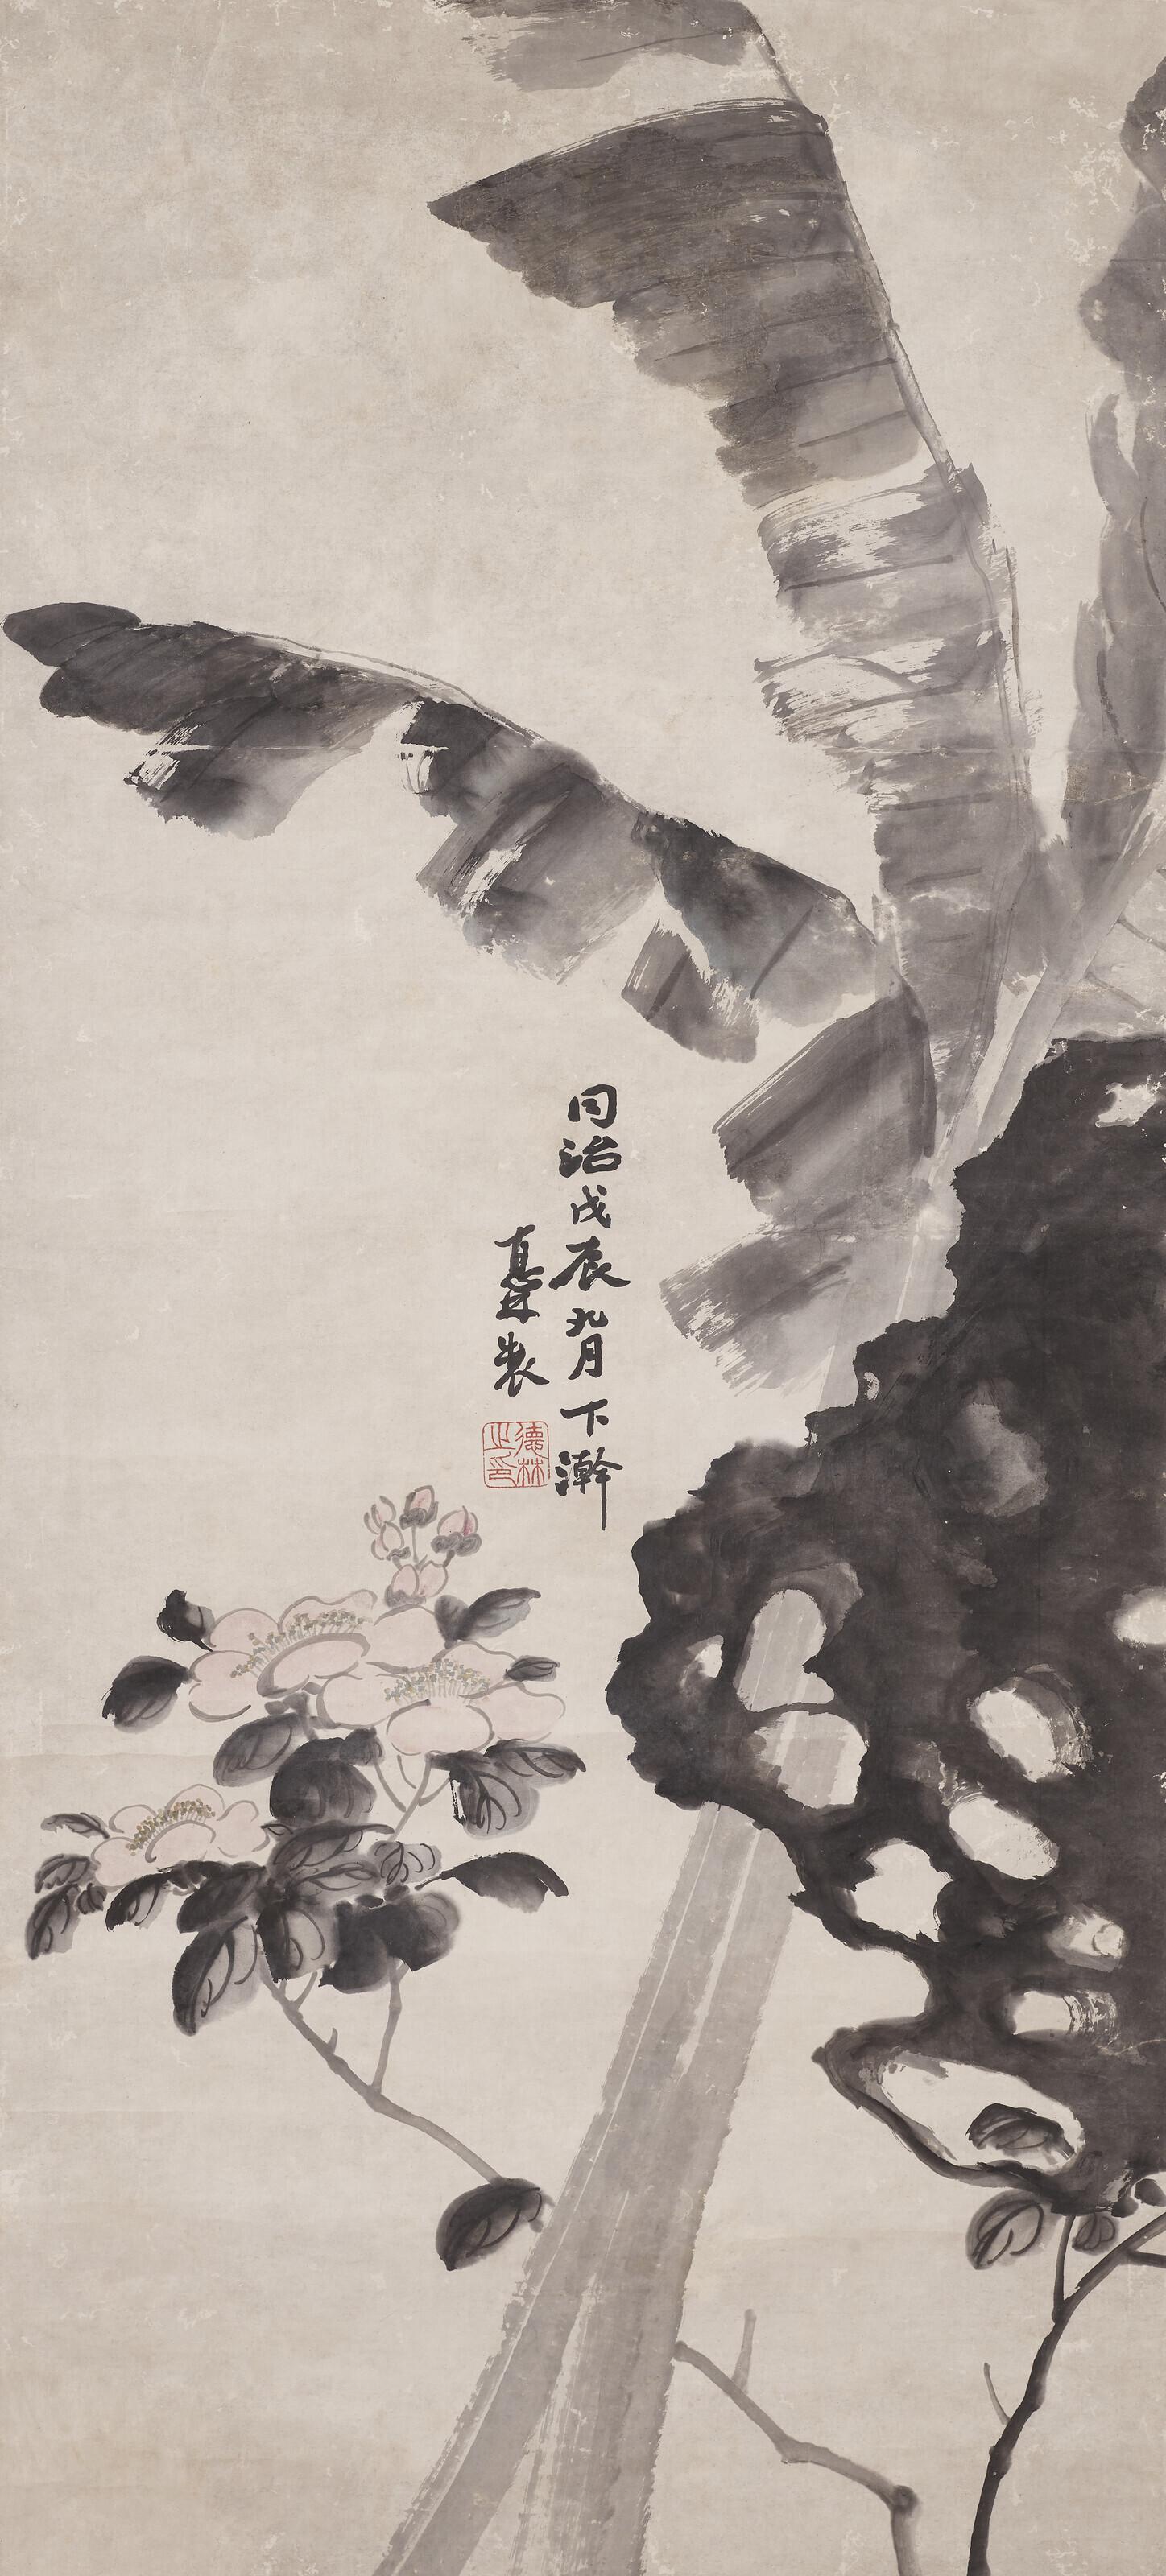 同治戊辰九月下澣
直林製
德林之印